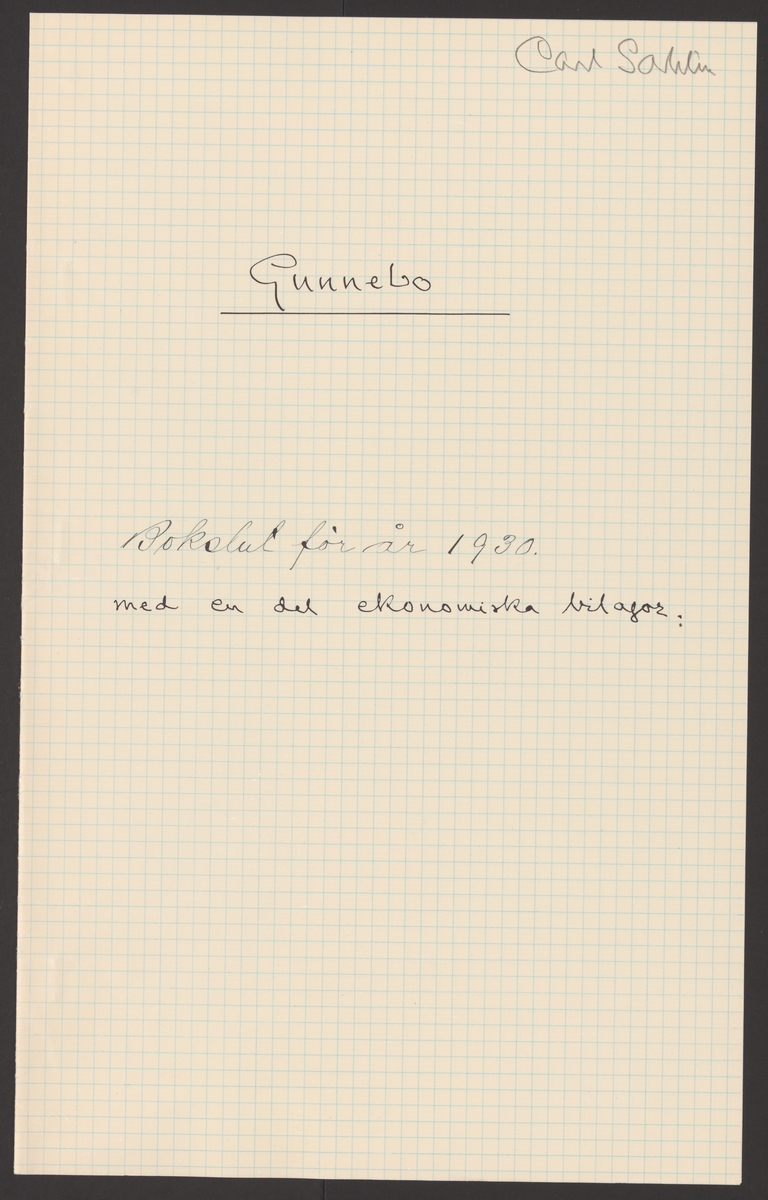 Carl Sahlin
Gunnebo
Bokslut för år 1930.
med en del ekonomiska bilagor: